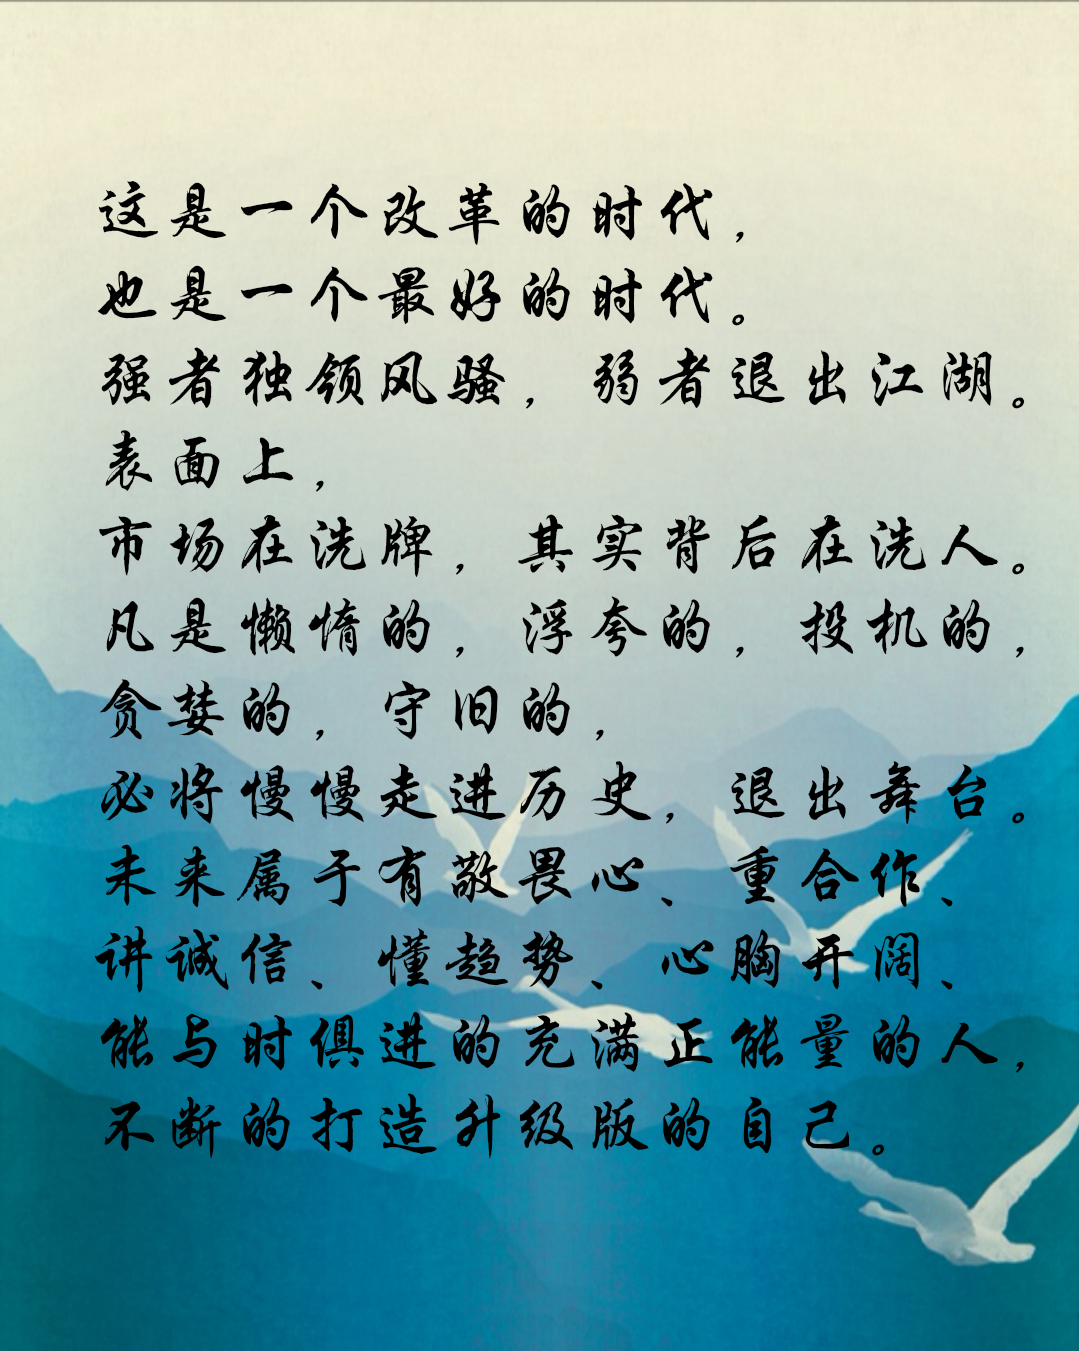 这是一个改革的时代，
也是一个最好的时代。
强者独领风骚，弱者退出江湖。
表面上，
市场在洗牌，其实背后在洗人。
凡是懒惰的，浮夸的，投机的，
贪婪的，守旧的，
必将慢慢走进历史，退出舞台。
未来属于有敬畏心、重合作、
讲诚信、懂趋势、心胸开阔、
能与时俱进的充满正能量的人，
不断的打造升级版的自己。